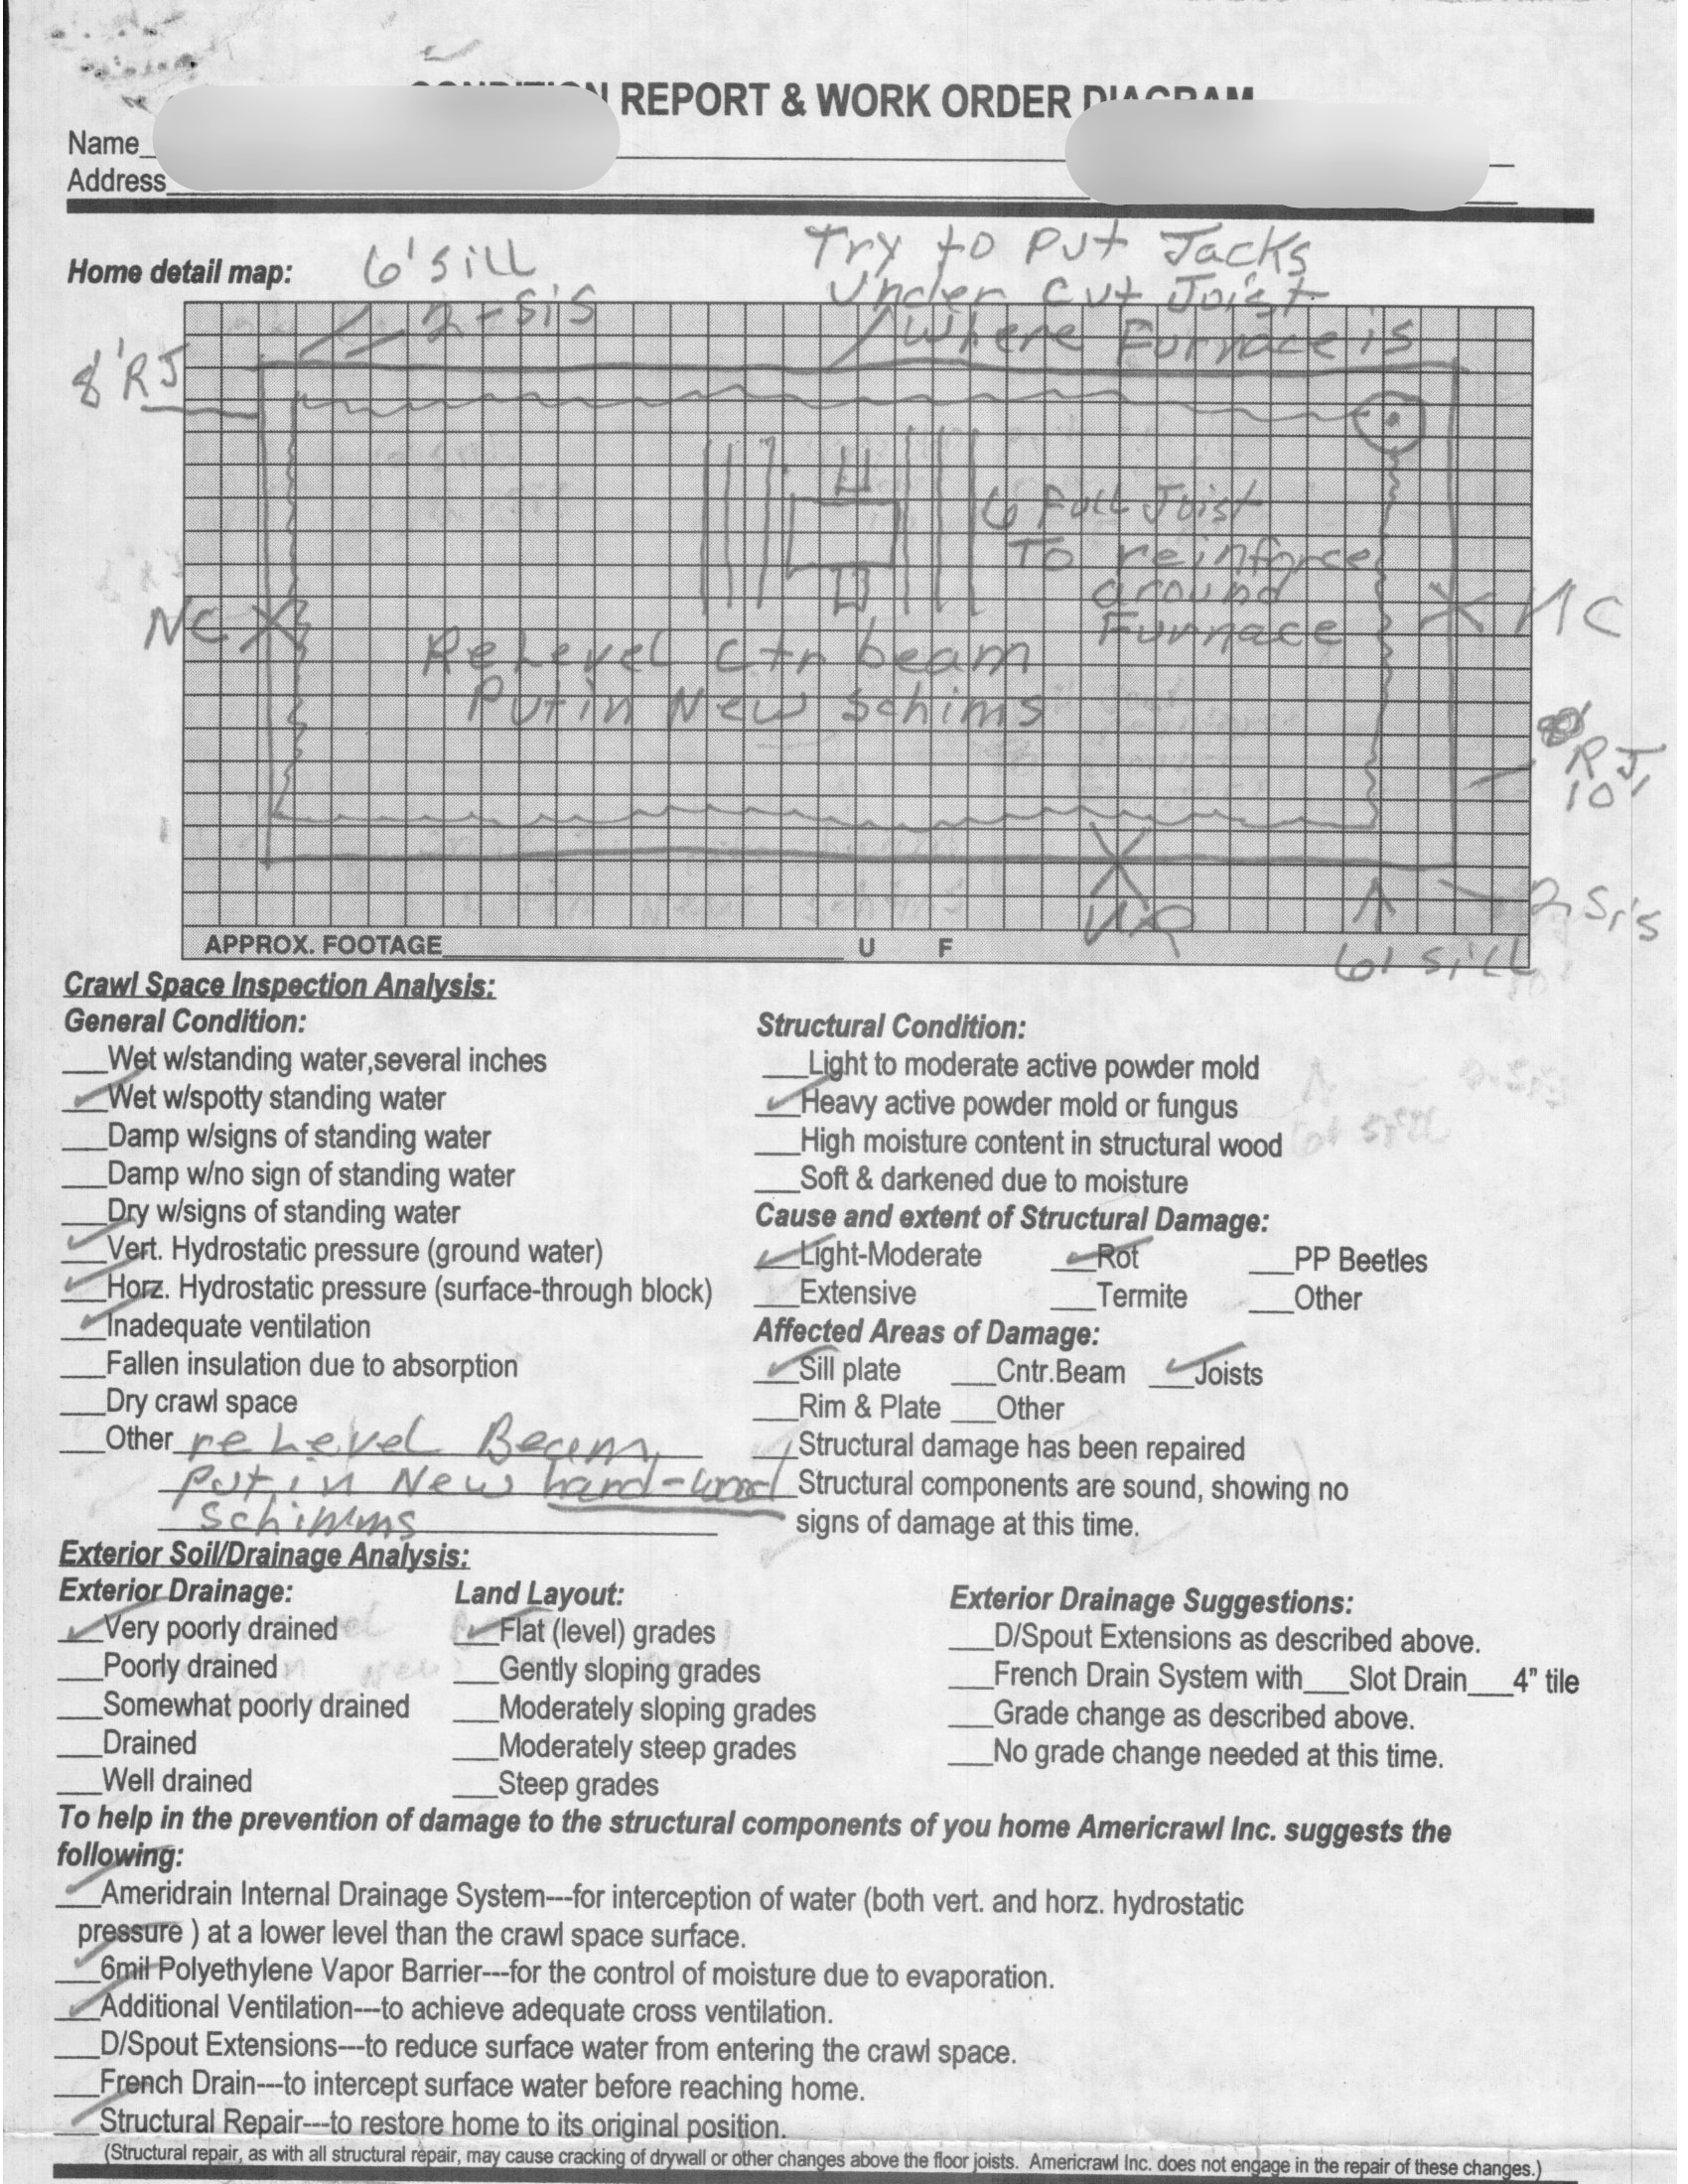 CONDITION REPORT & WORK ORDER DIAGRAM
Name
Address
Home detail map:
6' sill
2-sis
Try to Put Jacks
Under cut Joist
Where Furnace is
8' RJ
6 Full Joist
To reinforce
around
Furnace
NC
NC
ReLevel ctr beam
Put in New Schims
RJ
10'
2 Sis
6' sill
APPROX. FOOTAGE U F
Crawl Space Inspection Analysis:
General Condition:
Wet w/standing water,several inches
Wet w/spotty standing water
Damp w/signs of standing water
Damp w/no sign of standing water
Dry w/signs of standing water
Vert. Hydrostatic pressure (ground water)
Horz. Hydrostatic pressure (surface-through block)
Inadequate ventilation
Fallen insulation due to absorption
Dry crawl space
Other reLevel Beam,
put in New hard-wood
Schimms
Structural Condition:
Light to moderate active powder mold
Heavy active powder mold or fungus
High moisture content in structural wood
Soft & darkened due to moisture
Cause and extent of Structural Damage:
Light-Moderate Rot PP Beetles
Extensive Termite Other
Affected Areas of Damage:
Sill plate Cntr.Beam Joists
Rim & Plate Other
Structural damage has been repaired
Structural components are sound, showing no
signs of damage at this time.
Exterior Soil/Drainage Analysis:
Exterior Drainage:
Very poorly drained
Poorly drained
Somewhat poorly drained
Drained
Well drained
Land Layout:
Flat (level) grades
Gently sloping grades
Moderately sloping grades
Moderately steep grades
Steep grades
Exterior Drainage Suggestions:
D/Spout Extensions as described above.
French Drain System with Slot Drain 4" tile
Grade change as described above.
No grade change needed at this time.
To help in the prevention of damage to the structural components of you home Americrawl Inc. suggests the
following:
Ameridrain Internal Drainage System---for interception of water (both vert. and horz. hydrostatic
pressure ) at a lower level than the crawl space surface.
6mil Polyethylene Vapor Barrier---for the control of moisture due to evaporation.
Additional Ventilation---to achieve adequate cross ventilation.
D/Spout Extensions---to reduce surface water from entering the crawl space.
French Drain---to intercept surface water before reaching home.
Structural Repair---to restore home to its original position.
(Structural repair, as with all structural repair, may cause cracking of drywall or other changes above the floor joists. Americrawl Inc. does not engage in the repair of these changes.)